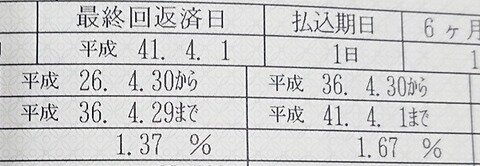 最終回返済日 払込期日 6ヶ月
平成 41. 4. 1 1日 1
平成 26. 4.30から 平成 36. 4.30から
平成 36. 4.29まで 平成 41. 4. 1まで
1.37 % 1.67 %